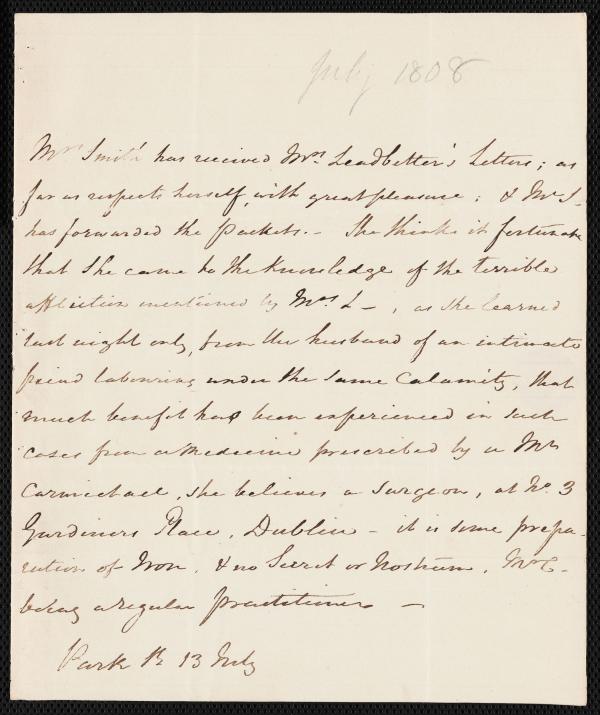 July 1808
Mrs. Smith has received Mrs. Leadbetter's Letters; as
far as respects herself, with great pleasure; & Mr S.
has forwarded the Packets. - She thinks it fortunate
that She came to the Knowledge of the terrible
affliction mentioned by Mrs L -, as she learned
last night only, from the husband of an intimate
friend labouring under the same Calamity, that
much benefit has been experienced in such
cases from a medicine prescribed by a Mr
Carmichael, she believes a Surgeon, at No 3
Gardiners Place, Dublin - it is some prepa-
ration of Iron, & no Secret or Nostrum, Mr C-
being a regular practitioner -
Park St 13 July